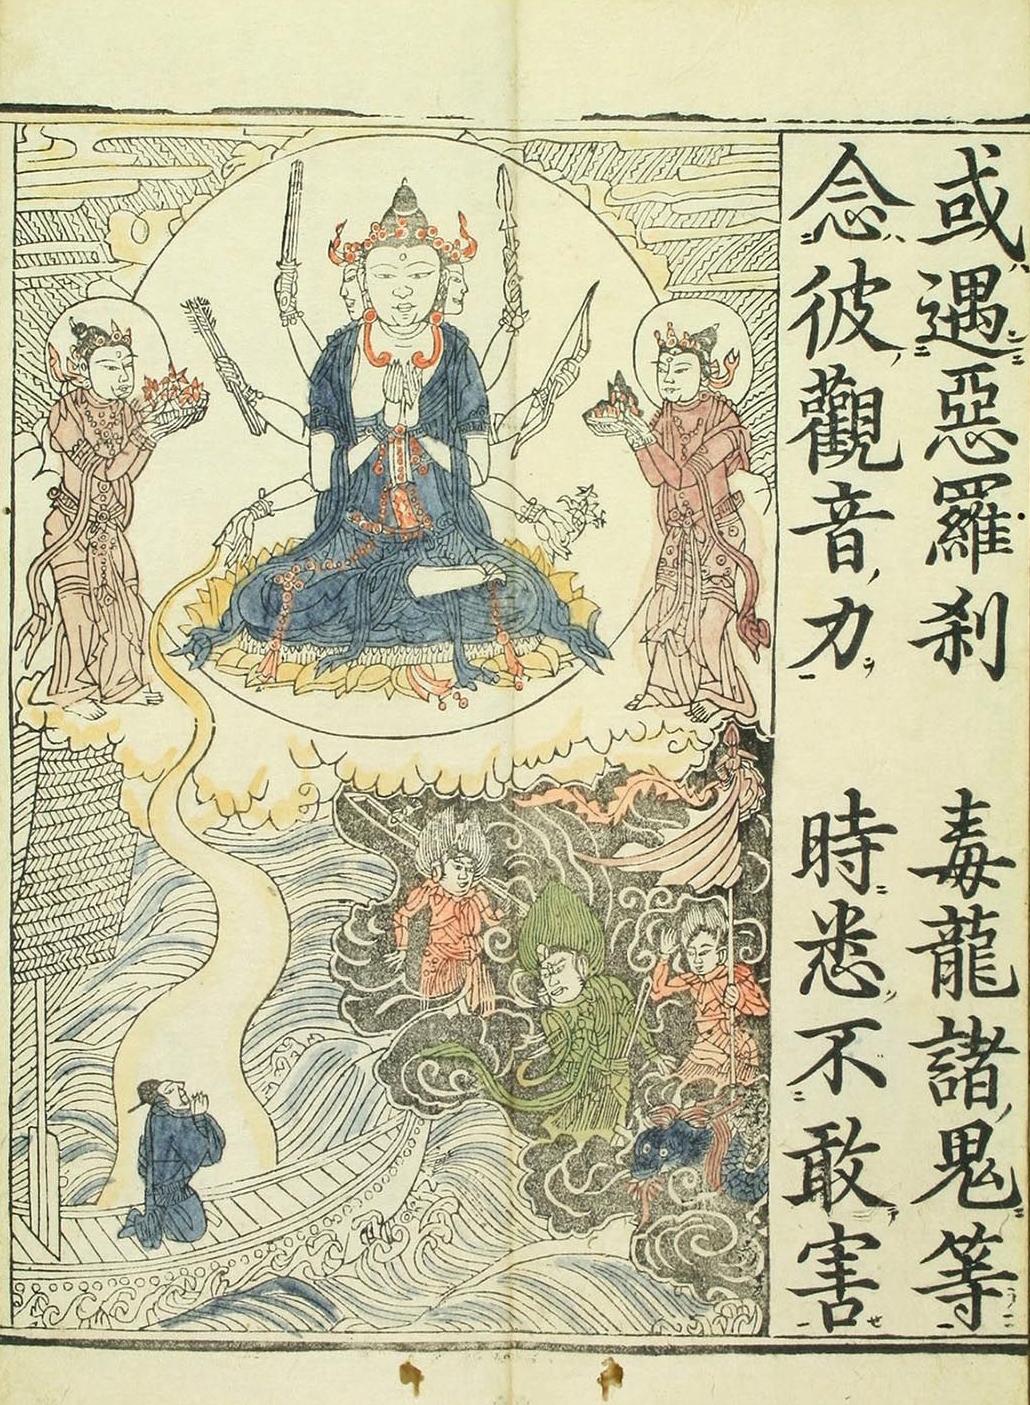 或遇惡羅刹 毒龍諸鬼等
念彼觀音力 時悉不敢害